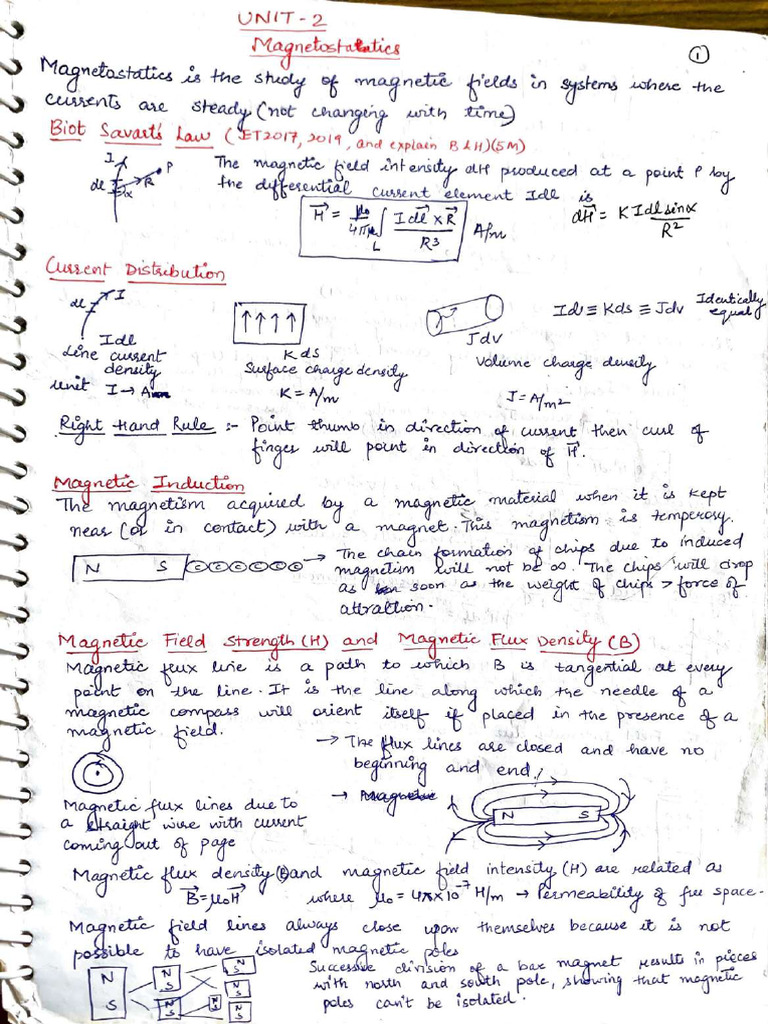 UNIT-2
Magnetostatics
1
Magnetostatics is the study of magnetic fields in systems where the
currents are steady (not changing with time)
Biot Savart's Law (ET2017, 2019, and explain B & H) (5M)
I
P
dl
R
α
The magnetic field intensity dH produced at a point P by
the differential current element Idl is
H⃗ = μ₀/4πμ₀ ∫_L Idl⃗ × R⃗ / R³ A/m
dH⃗ = K Idl sinα / R²
Current Distribution
dl
I
Idl
Line current
density
unit I → Am
Kds
Surface charge density
K = A/m
Jdv
Volume charge density
J = A/m²
Idl ≡ Kds ≡ Jdv Identically
equal
Right Hand Rule :- Point thumb in direction of current then curl of
finges will point in direction of H⃗.
Magnetic Induction
The magnetism acquired by a magnetic material when it is kept
near (or in contact) with a magnet. This magnetism is temperory.
N S
→ The chain formation of chips due to induced
magnetism will not be ∞. The chips will drop
as soon as the weight of chips > force of
attraction.
Magnetic Field Strength (H) and Magnetic Flux Density (B)
Magnetic flux line is a path to which B is tangential at every
point on the line. It is the line along which the needle of a
magnetic compass will orient itself if placed in the presence of a
magnetic field.
→ The flux lines are closed and have no
beginning and end.
→ Magnetic
N S
Magnetic flux lines due to
a straight wire with current
coming out of page
Magnetic flux density (B) and magnetic field intensity (H) are related as
B⃗ = μ₀H⃗ where μ₀ = 4π×10⁻⁷ H/m → Permeability of free space.
Magnetic field lines always close upon themselves because it is not
possible to have isolated magnetic poles
N
S
N
S
N
S
N
S
N
S
N
S
N
S
Successive division of a bar magnet results in pieces
with north and south pole, showing that magnetic
poles can't be isolated.